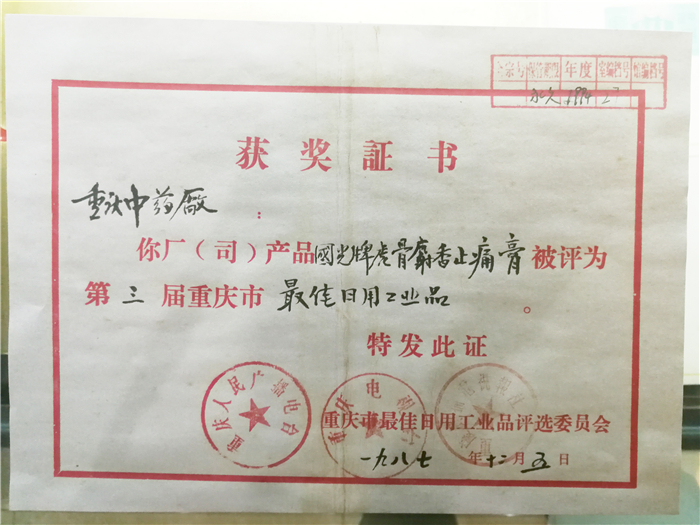 全宗号 保管期限 年度 室编档号 馆编档号
永久 1994 27
获奖証书
重庆中药厰：
你厂（司）产品國光牌虎骨麝香止痛膏被评为
第三届重庆市最佳日用工业品。
特发此证
重庆人民广播电台
重庆电视台
重庆市最佳日用工业品评选委员会
一九八七年十二月五日